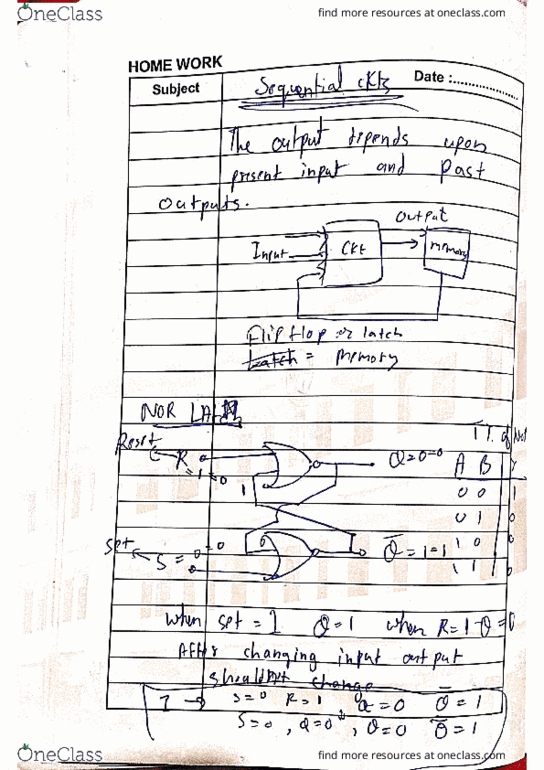 OneClass
find more resources at oneclass.com
HOME WORK
Subject
Sequential ckts
Date :....................
The output depends upon
present input and past
outputs.
output
Input
Ckt
memory
Flip flop or latch
= memory
NOR
Reset
R
= 1
0
1
Q=0-0
A B Y
0 0 1
0 1 0
1 0 0
1 1 0
Set
S = 0
0
Q̅ = 1=1
when set = 1 Q=1 when R=1 Q=0
After changing input output
shouldn't change
I → S=0 R=1 Q=0 Q̅=1
S=0, Q=0, Q̅=1
OneClass
find more resources at oneclass.com